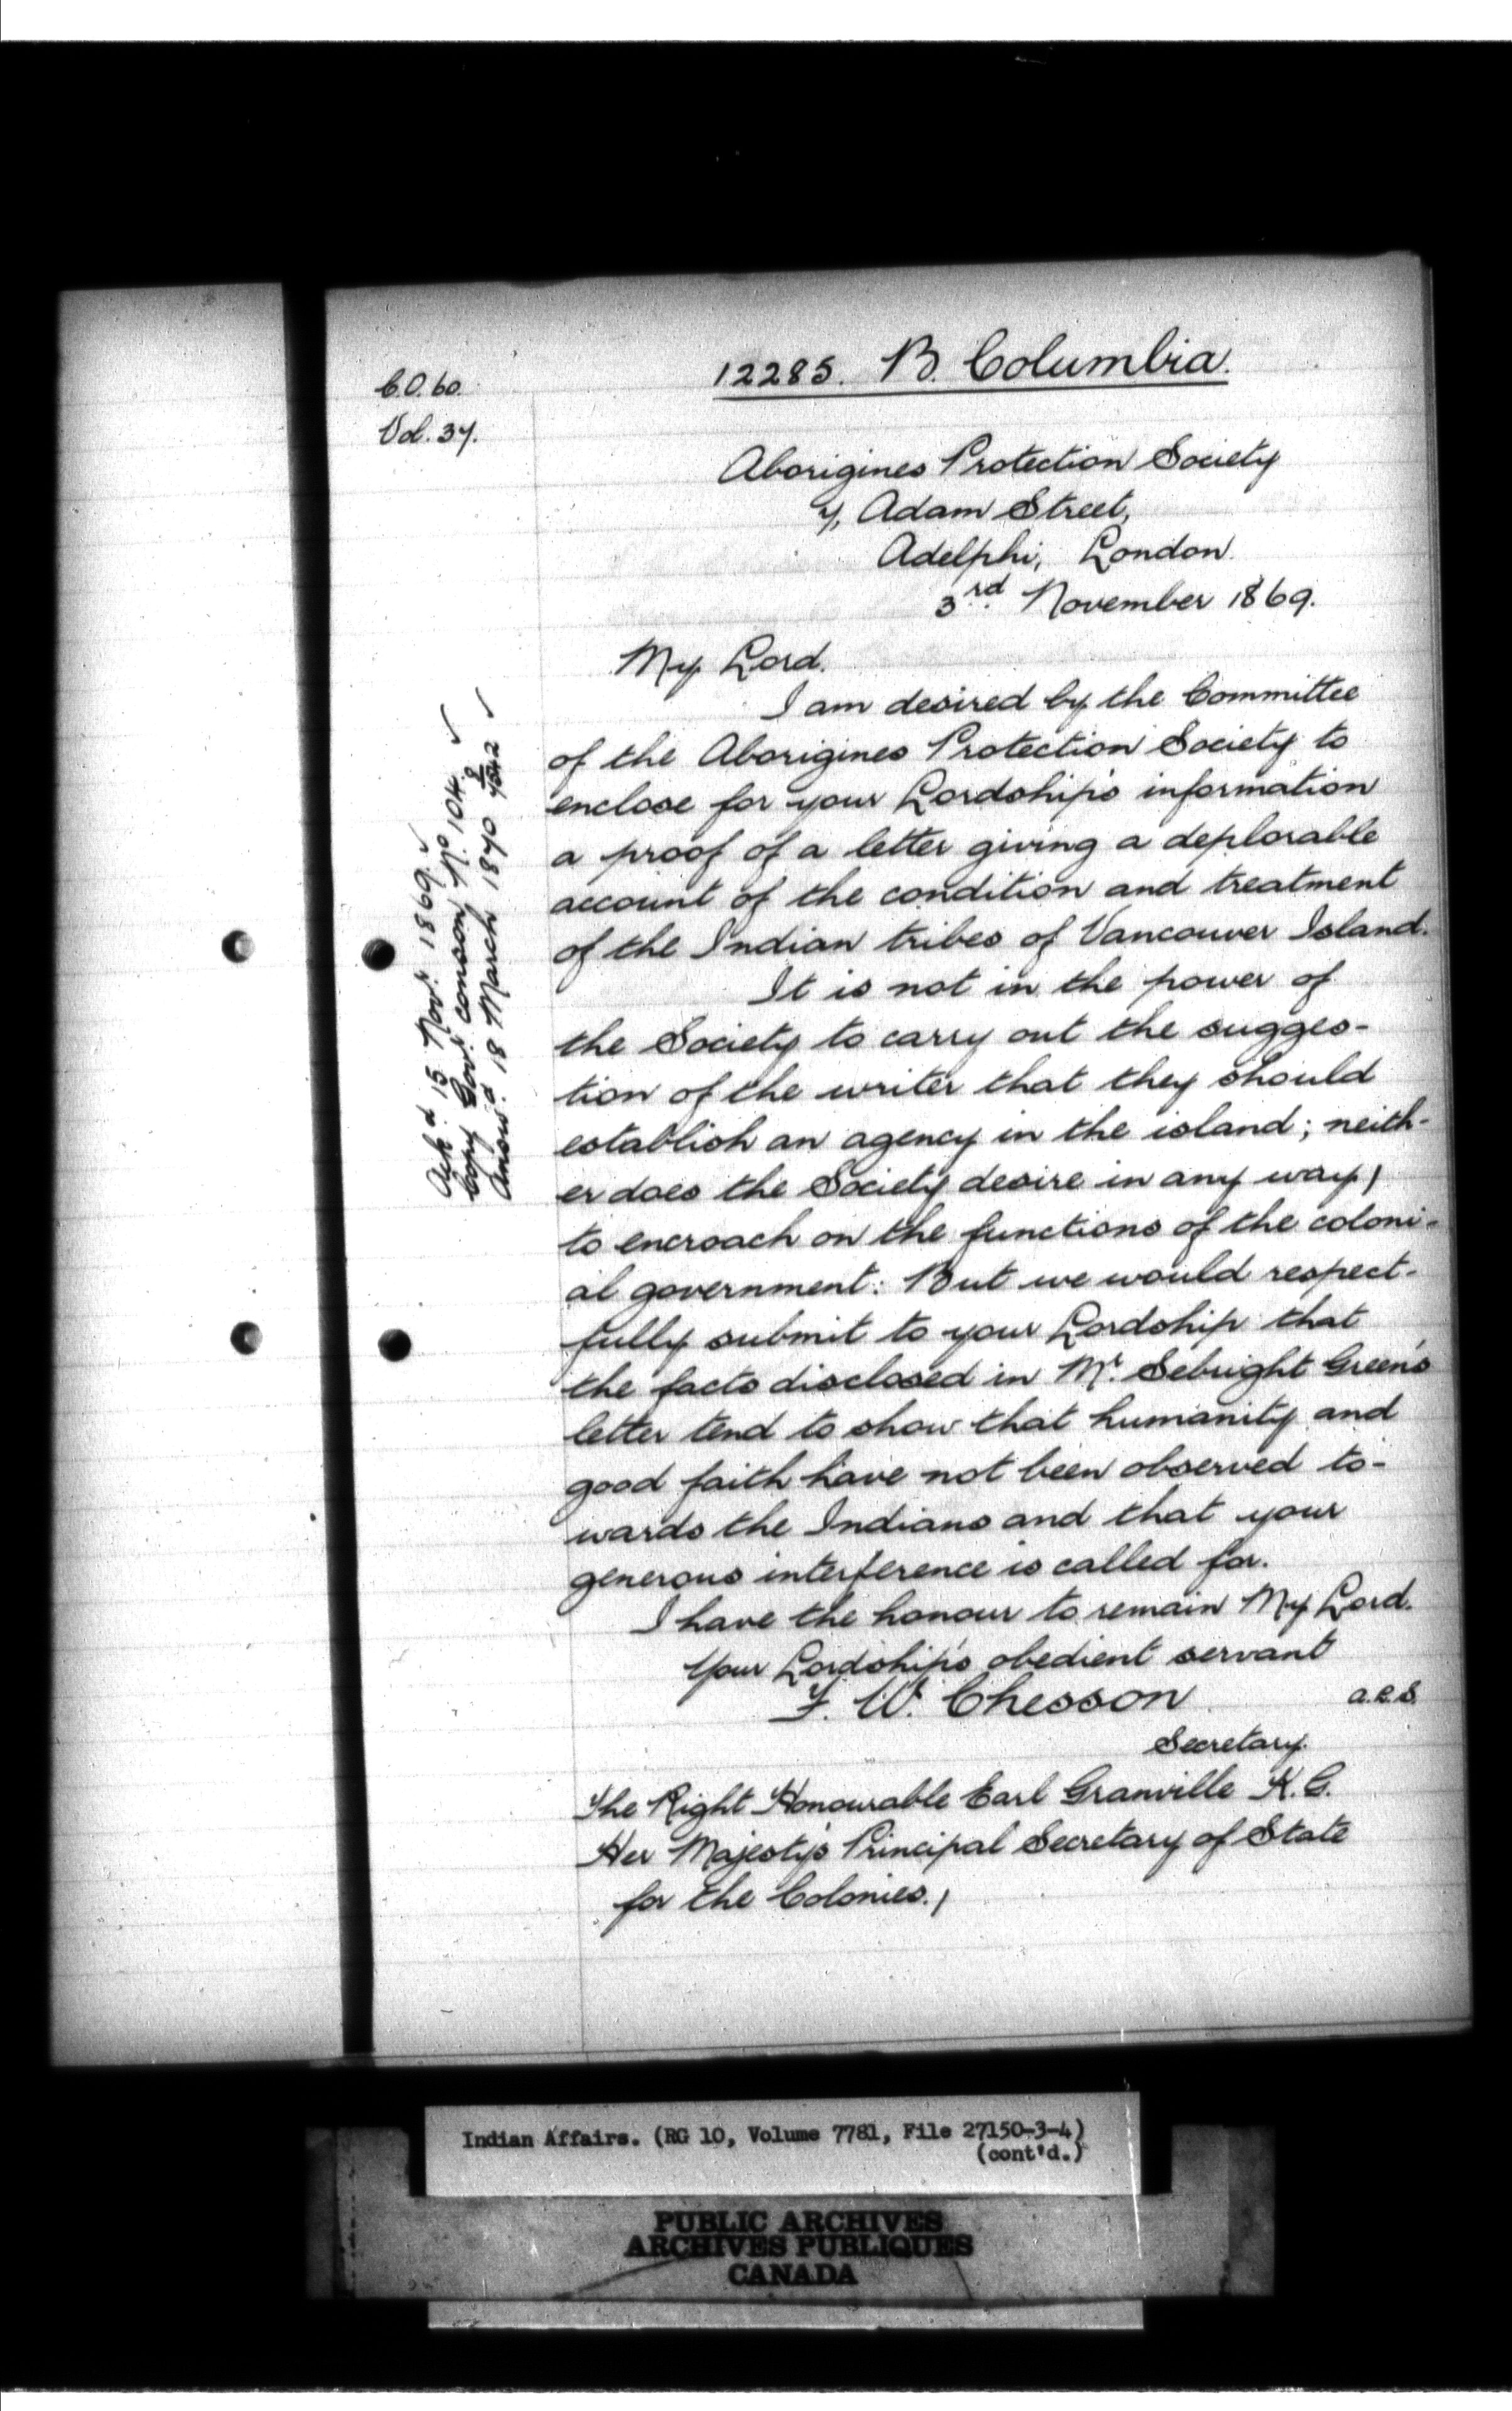 C.O. 60.
Vol. 37.
12285. B. Columbia.
Aborigines Protection Society
7, Adam Street,
Adelphi, London.
3rd November 1869.
My Lord.
I am desired by the Committee
of the Aborigines Protection Society to
enclose for your Lordship's information
a proof of a letter giving a deplorable
account of the condition and treatment
of the Indian tribes of Vancouver Island.
It is not in the power of
the Society to carry out the sugges-
tion of the writer that they should
establish an agency in the island; neith-
er does the Society desire in any way,
to encroach on the functions of the coloni-
al government: But we would respect-
fully submit to your Lordship that
the facts disclosed in Mr. Sebright Green's
letter tend to show that humanity and
good faith have not been observed to-
wards the Indians and that your
generous interference is called for.
I have the honour to remain My Lord.
Your Lordship's obedient servant
F. W. Chesson
a.e.S.
Secretary.
The Right Honourable Earl Granville K.G.
Her Majesty's Principal Secretary of State
for the Colonies.
Ack.d 15 Nov.r 1869. ✓
Copy Gov.r No. 104. ✓
Answ.d 18 March 1870 ✓
Indian Affairs. (RG 10, Volume 7781, File 27150-3-4)
(cont'd.)
PUBLIC ARCHIVES
ARCHIVES PUBLIQUES
CANADA